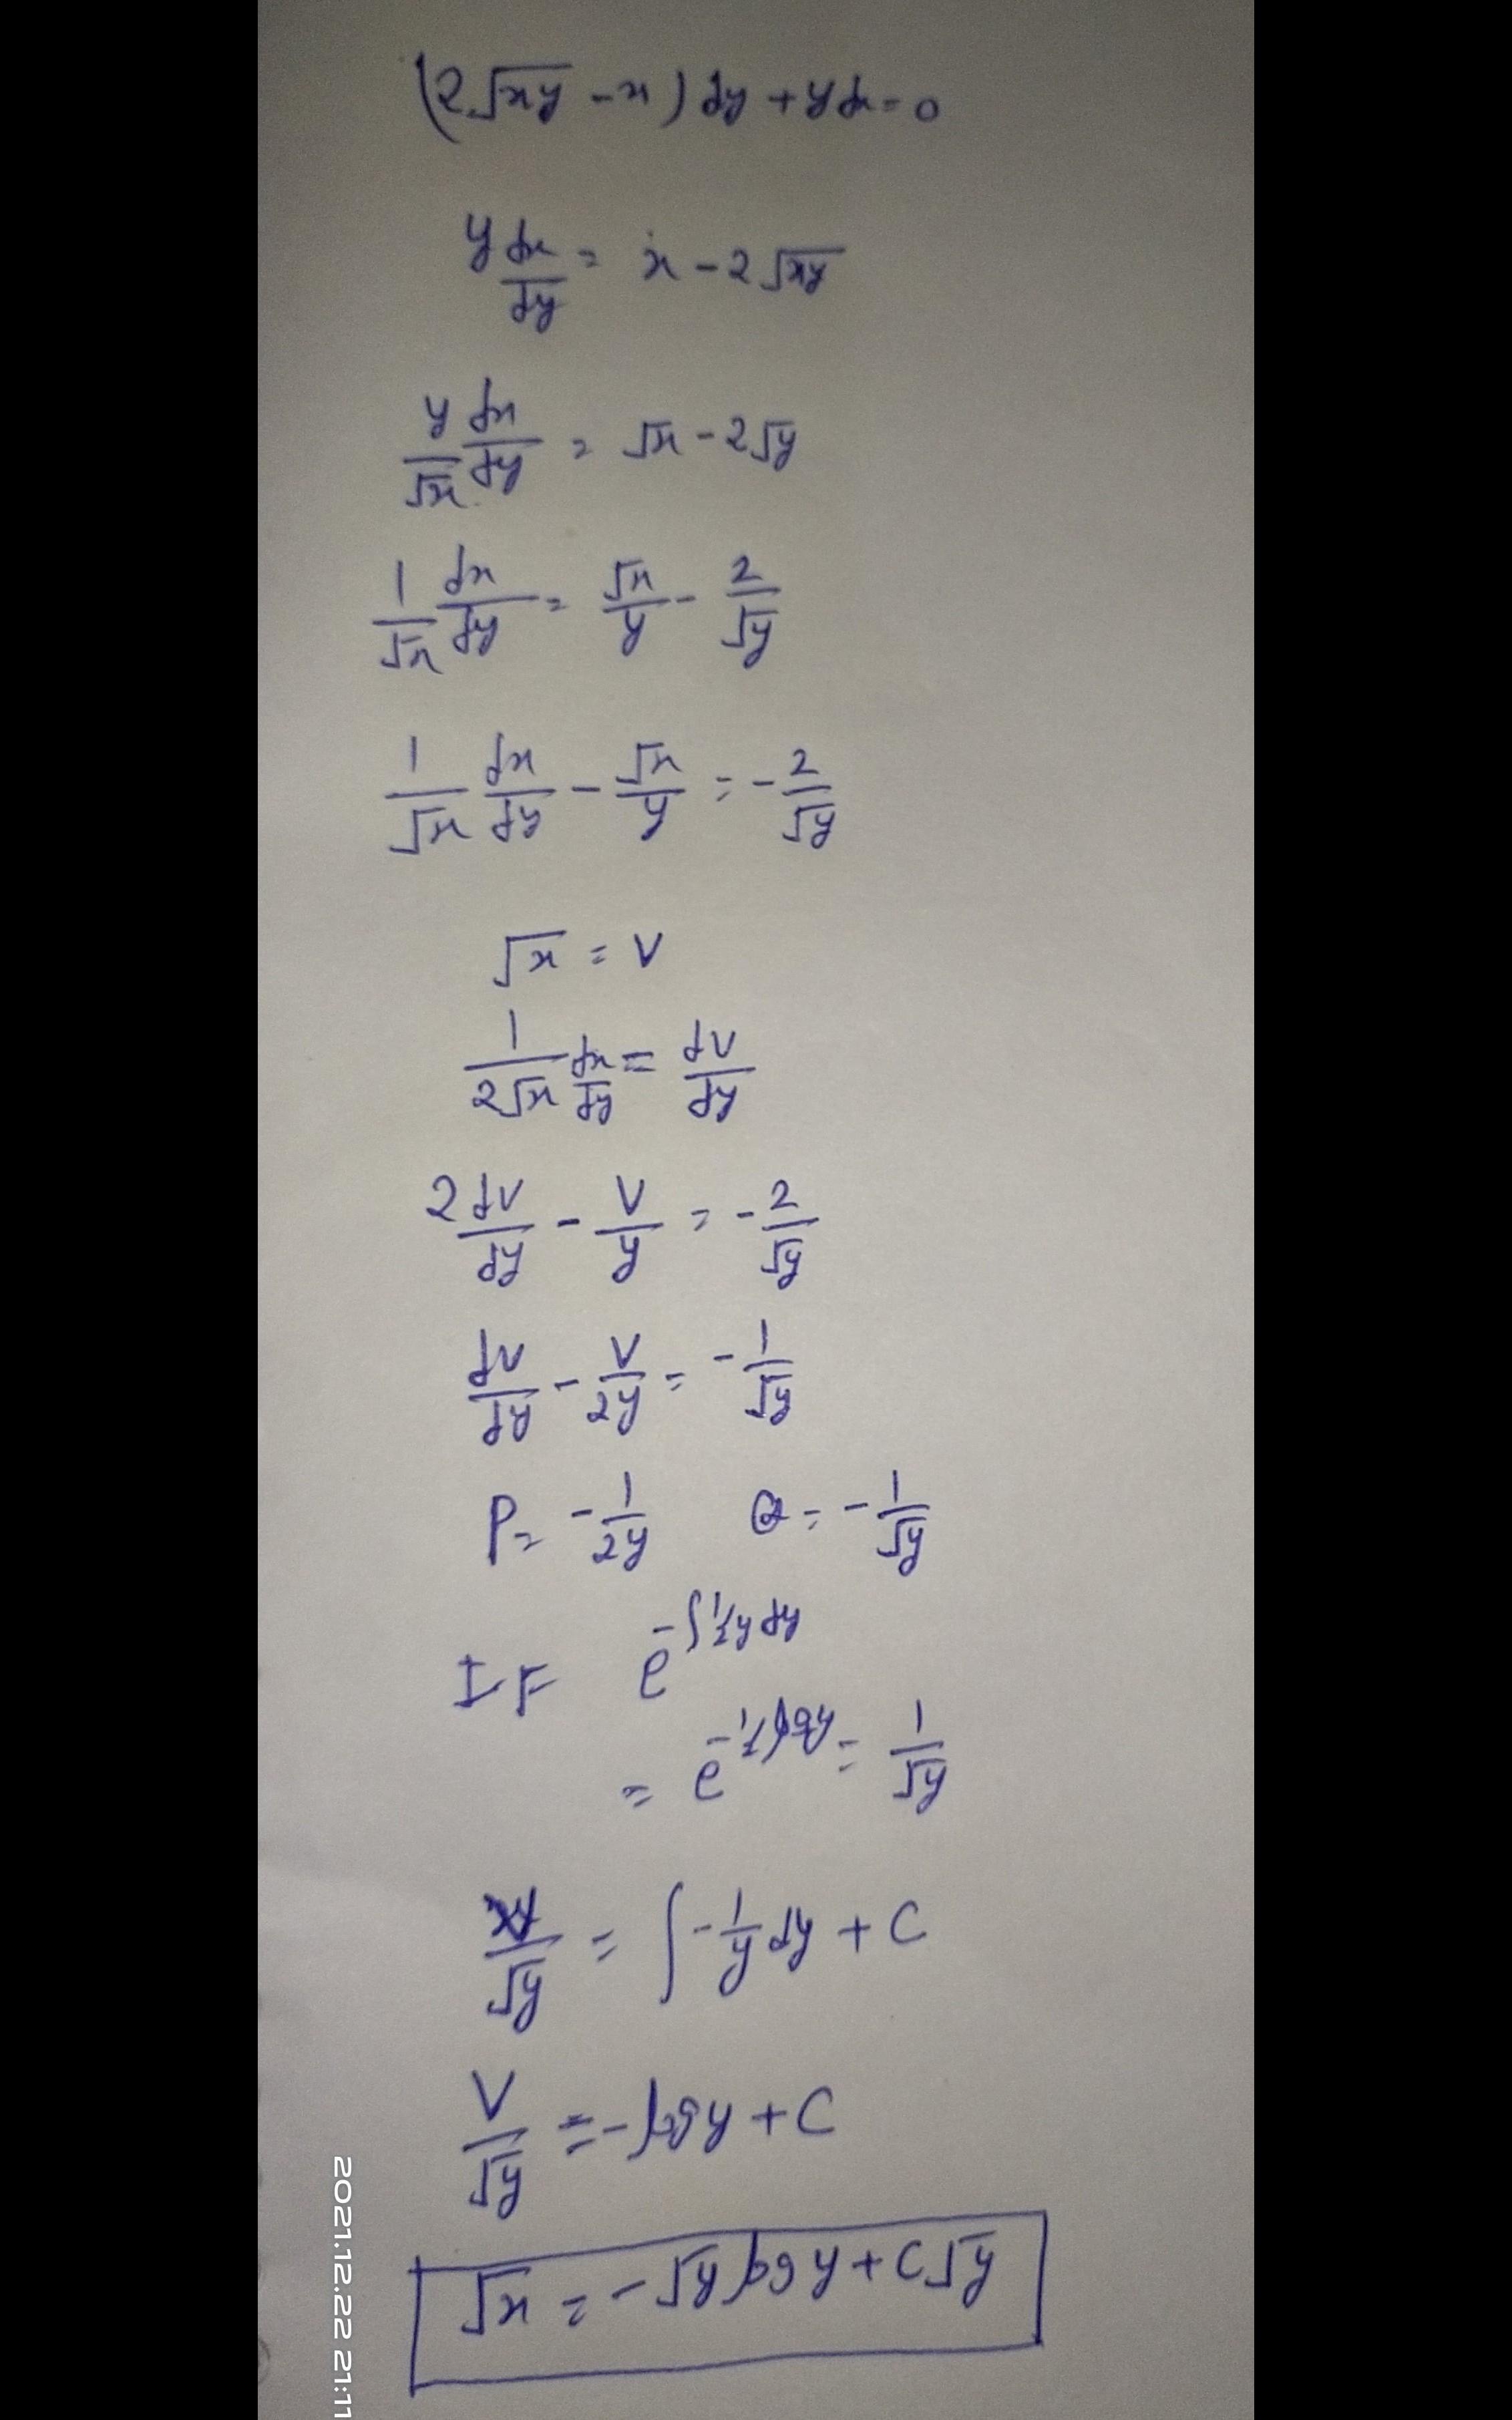 (2√xy - x) dy + y dx = 0
y dx/dy = x - 2√xy
y/√x dx/dy = √x - 2√y
1/√x dx/dy = √x/y - 2/√y
1/√x dx/dy - √x/y = -2/√y
√x = V
1/2√x dx/dy = dV/dy
2 dV/dy - V/y = -2/√y
dV/dy - V/2y = -1/√y
P = -1/2y Q = -1/√y
IF e^-∫1/2y dy
= e^-1/2 log y = 1/√y
/√y = ∫ -1/y dy + C
V/√y = -log y + C
√x = -√y log y + C√y
2021.12.22 21:11